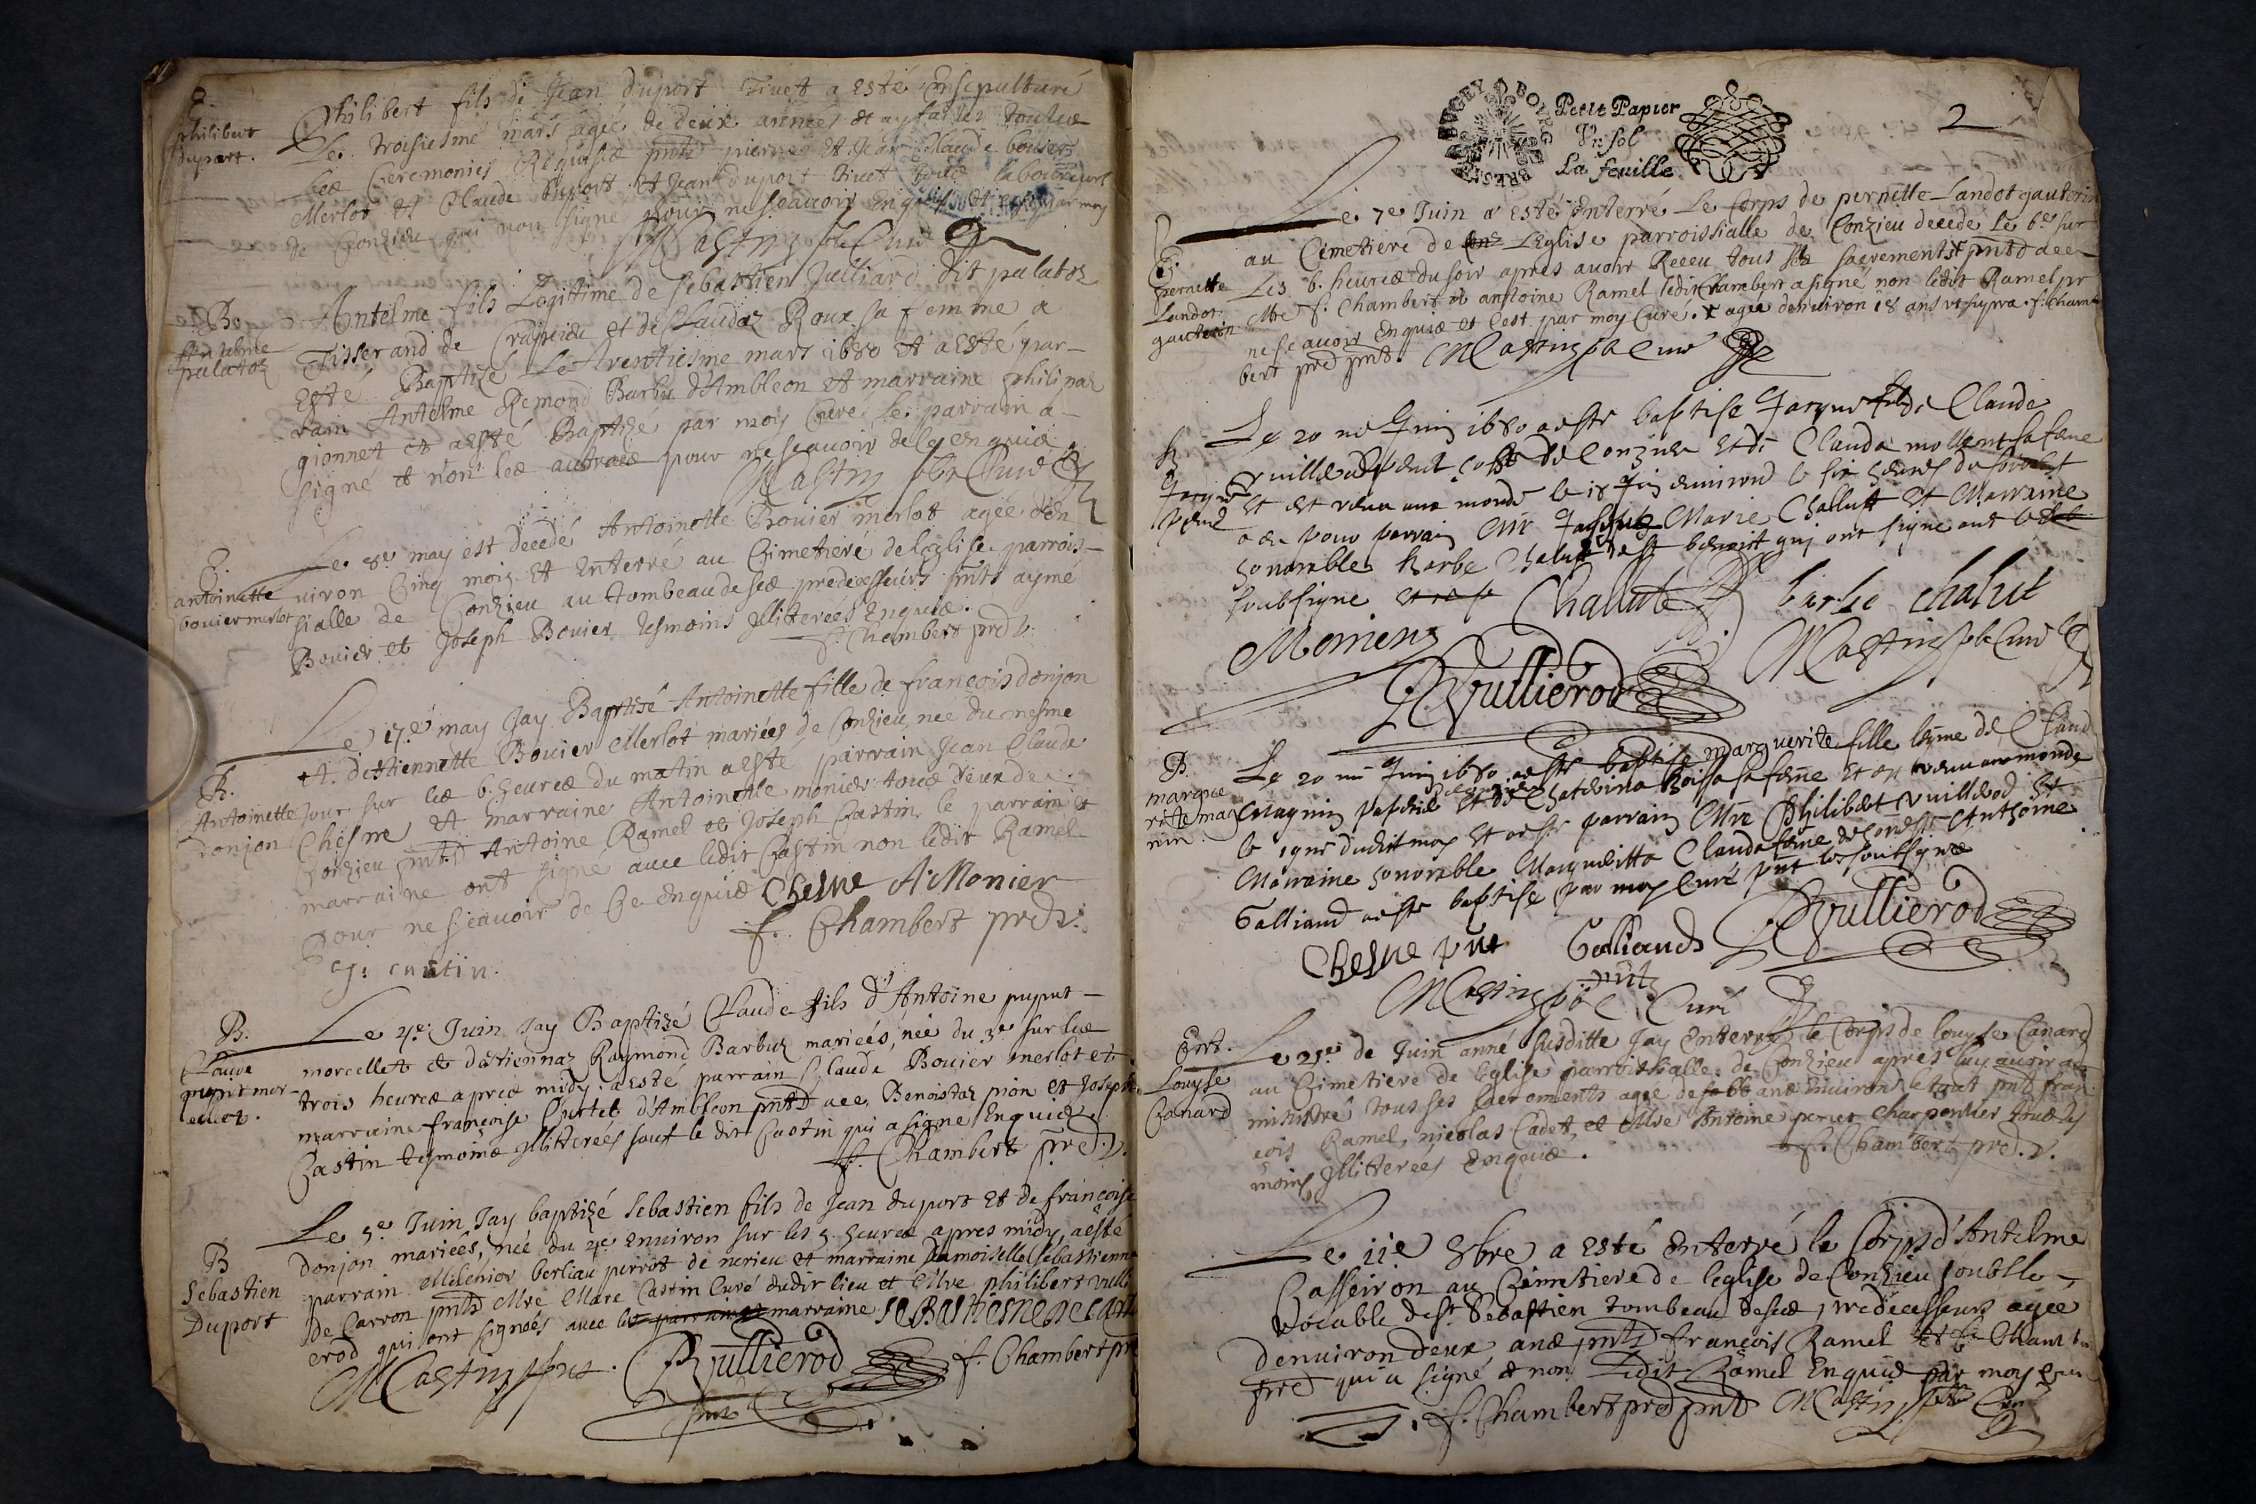 E.
philibert
duport.
Philibert fils de Jean duport Tivet a esté Ensepulturé
Le troisiesme mars agée de deux années et ay faittes toutes
les Ceremonies Requise pnts pierre et Jean Claude bovier
Merlot et Claude duport et Jean duport Tivet tous laboureurs
de Conzieu qui non signe pour ne scavoir Enquis et par moy
MCastin pbr Curé
B.
Antelme
palatoz
Antelme fils Legitime de sebastien Julliard dit palatoz
Tisserand de Crapieu et de Claudaz Roux sa femme a
Esté Baptizé Le trentiesme mars 1680 et a esté par-
rain Antelme Remond Barbu d'Ambleon et marraine philipaz
gionnet et a esté Baptizé par moy Curé le parrain a
signé et non les autres pour ne scavoir de ce enquis
MCastin pbr Curé
E.
antoinette
bovier merlot
Le 8e. may est decedé Antoinette Bovier merlot agée d'en
viron Cinq mois et Enterré au Cimetiere de l'eglise parrois-
sialle de Conzieu au tombeau de ses predecesseurs pnts aymé
Bovier et Joseph Bovier tesmoins Illitereés Enquis.
f. Chambert pred v.
B.
Antoinette
donjon
Le 17.e may Jay Baptisé Antoinette fille de françois donjon
et d'estiennette Bovier Merlot mariées de Conzieu, née du mesme
Jour sur les 6. heures du matin a esté parrain Jean Claude
Chesne, et marraine Antoinette monier tous deux de
Conzieu pnts Antoine Ramel et Joseph Castin le parrain et
marraine ont signé avec ledit Castin non ledit Ramel
Pour ne scavoir de Ce Enquis Chesne A Monier
f. Chambert pred v.
J: castin.
B.
Claude
puput mor-
cellet.
Le 4e. Juin Jay Baptizé Claude fils d'Antoine puput
morcellet et d'Estiennaz Raymond Barbuz mariées, née du 3e sur les
trois heures apres midy: a esté parrain Claude Bovier merlot et
marraine françoise Chertet d'Ambleon pnts avec Benoistaz pion et Joseph
Castin tesmoins Illitereés sauf le dit Castin qui a signé Enquis.
f. Chambert pred. v.
B
Sebastien
Duport
Le 5e Juin Jay baptizé Sebastien fils de Jean duport Et de françoise
Donjon mariées, née du 4e environ sur les 5. heures apres midy, a este
parrain Melchior berliau perrot de nerieu et marraine damoiselle sebastienne
de Carron pnts Mre Marc Castin Curé dudit lieu et Mre philibert vulli
erod qui ont signés avec les parrain et marraine SeBastiesne de Carr
MCastin pbr. PVullierod f. Chambert pre
pnt
BUGEY BOURG BRESSE
Petit Papier
Vn sol
La feuille.
2
E.
pernette
Landot
gauteron
Le 7e Juin a Esté Enterré Le Corps de pernette Landot gauterin
au Cimetiere de Conz L'Eglise parroissialle de Conzieu decede Le 6e sur
Les 6. heures du soir apres avoir Receu tous ses sacrements x pnts avec
Mre f. Chambert et antoine Ramel ledit Chambert a signé non ledit Ramel pr
ne scavoir Enquis et C'est par moy Curé. x agée denviron 18 ans ut supra f. Cham
bert pred pnt. MCastin pbr Curé
B
Jacque
Le 20 me Juin 1680 a este baptise Jacque fils de Claude
de Conzieu Et de Claude mollent sa feme
Et est venu au monde le 18 Juin environ le six heures du soir
a eu pour parrain Mr Marie Challut Et Marraine
honorable barbe Chalut qui ont signe
soubsigne Challut barbe chalut
Moniens MCastin pbr Curé
PVullierod
B.
margue
ritte mag
nin
Le 20 me Juin 1680 a este baptise Marguerite fille legme de Claud
Magnin Et de Chaterina sa feme Et est venu au monde
le 19me dudit moy Et a este parrain Mre Philibert vullierod Et
Marraine honorable Marguerite Claude feme de honeste Anthoine
Galliand a este baptise par moy Curé pnt les soubsignes
Chesne pnt Galliand PVullierod
pnt
MCastin pbr Curé
Ent.
Louyse
Canard
Le 21e. de Juin anné susditte Jay Enterré le Corps de louyse Canard
au Cimetiere de leglise parroissialle de Conzieu apres luy avoir ad
ministré tous ses sacrements agée de ans Environ le tout pnts fran
cois Ramel, nicolas Cadet et Mre Antoine perret charpentier tous tes
moins Illitereés Enquis.
f. Chambert pred. v.
Le 11e 8bre a Esté Enterré le Corps d'Antelme
Casseiron au Cimetiere de leglise de Conzieu soub le
Vocable de st. Sebastien tombeau de ses predecesseurs agée
denviron deux ans pnts françois Ramel et f. Cham be
pred qui a signé et non Ledit Ramel Enquis par moy Curé
f. Chambert pred pnt MCastin pbr Curé